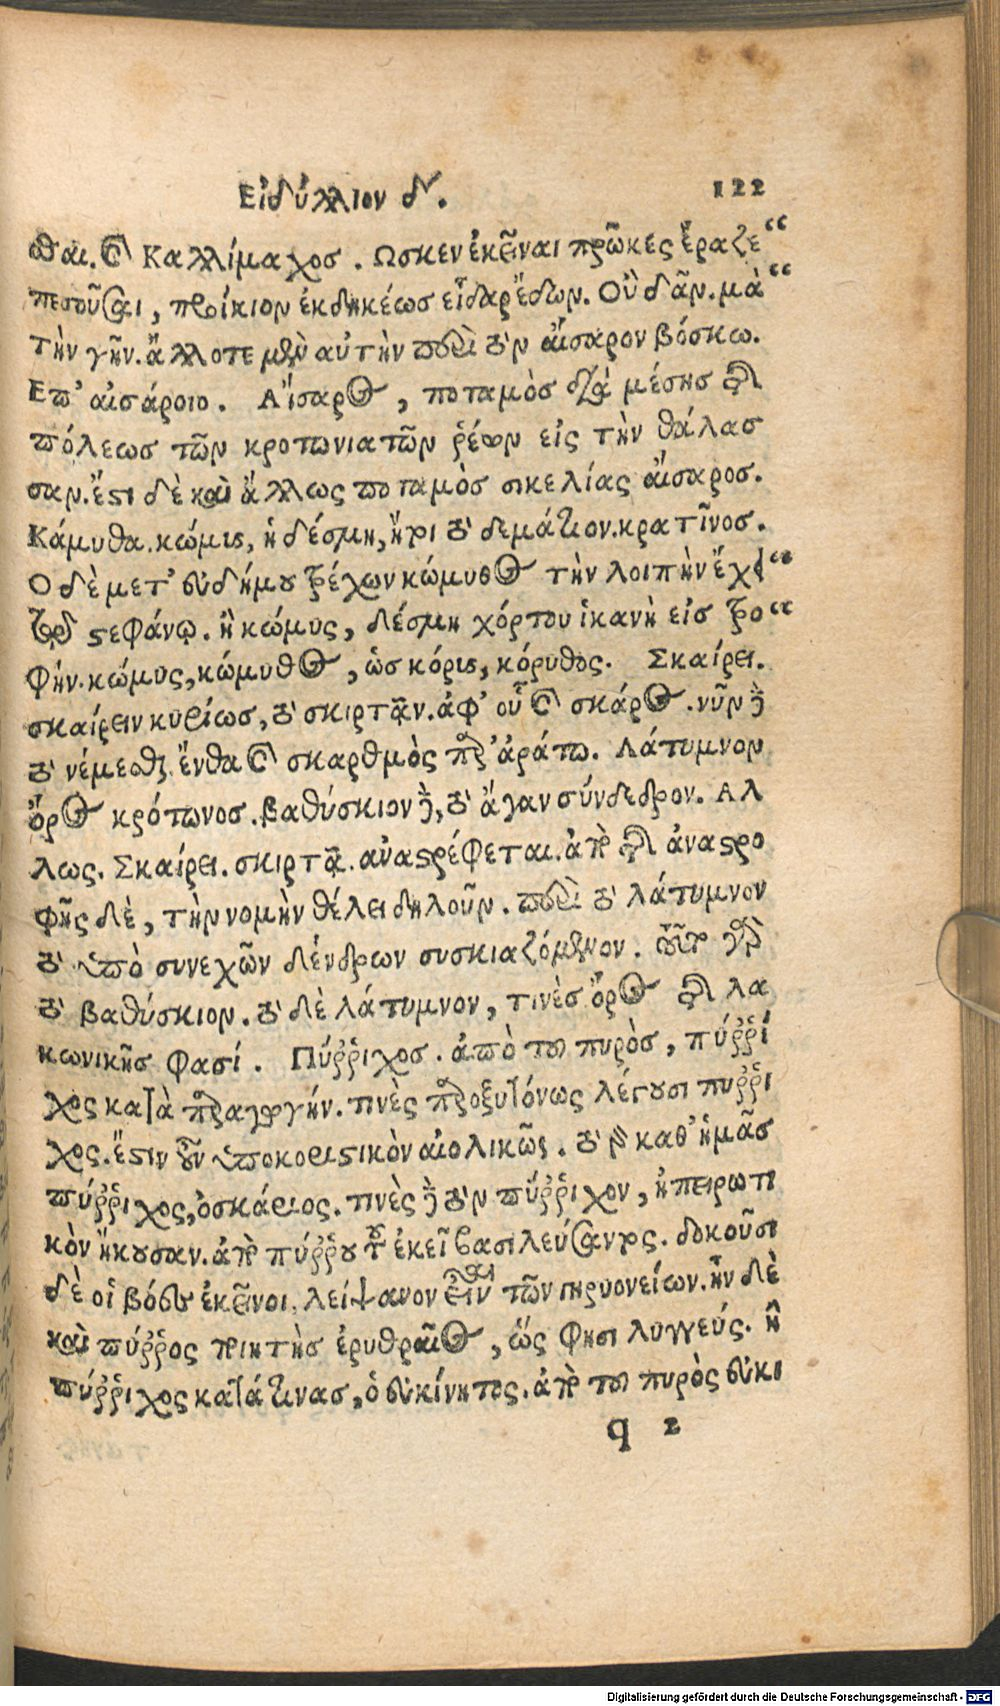 Εἰδύλλιον δ. 122
σθαι. καὶ Καλλίμαχος. Ωσκεν ἐκεῖναι πρῶκες ἔραζε “
πεσοῦσαι, προίκιον ἐκ δηκέως εἶδαρ ἔδων. Οὐ δᾶν. μὰ “
τὴν γῆν. ἄλλοτε μὲν αὐτὴν περὶ τὸν αἴσαρον βόσκω.
Επ’ αἰσάροιο. Αἴσαρος, ποταμὸς διὰ μέσης τῆς
πόλεως τῶν κροτωνιατῶν ῥέων εἰς τὴν θάλασ
σαν. ἔστι δὲ καὶ ἄλλως ποταμὸς σικελίας αἴσαρος.
Κάμυθα. κώμυς, ἡ δέσμη, ἤτοι τὸ δεμάτιον. κρατῖνος.
Ο δὲ μετ’ εὐδήμου τρέχων κώμυθος τὴν λοιπὴν ἔχει “
τῷ στεφάνῳ. ἢ κώμυς, δέσμη χόρτου ἱκανὴ εἰς τρο “
φήν. κώμυς, κώμυθος, ὡς κόρυς, κόρυθος. Σκαίρει.
σκαίρειν κυρίως, τὸ σκιρτᾷν. ἀφ’ οὗ καὶ σκάρος. νῦν δὲ
τὸ νέμεσθαι. ἔνθα καὶ σκαρθμὸς παρ’ ἀράτῳ. Λάτυμνον
ὄρος κρότωνος. βαθύσκιον δὲ, τὸ ἄγαν σύνδεδρον. Αλ
λως. Σκαίρει. σκιρτᾷ. ἀναστρέφεται. ἀπὸ τῆς ἀναστρο
φῆς δὲ, τὴν νομὴν θέλει δηλοῦν. περὶ τὸ λάτυμνον
τὸ ὑπὸ συνεχῶν δένδρων συσκιαζόμενον. τοῦτο γὰρ
τὸ βαθύσκιον. τὸ δὲ λάτυμνον, τινὲς ὄρος τῆς λα
κωνικῆς φασί. Πύῤῥιχος. ἀπὸ τοῦ πυρὸς, πύῤῥι
χος κατὰ παραγωγήν. τινὲς παροξυτόνως λέγουσι πυῤῥί
χος. ἔστιν οὖν ὑποκοριστικὸν αἰολικῶς. τὸ δὲ καθ’ ἡμᾶς
πύῤῥιχος, ὁσκάριος. τινὲς δὲ τὸν πύῤῥιχον, ἠπειρωτι
κὸν ἤκουσαν. ἀπὸ πύῤῥου τοῦ ἐκεῖ βασιλεύσαντος. δοκοῦσι
δὲ οἱ βόες ἐκεῖνοι, λείψανον εἶναι τῶν γηρυονείων. ἦν δὲ
καὶ πύῤῥος ποιητὴς ἐρυθραῖος, ὥς φησι λυγγεύς. ἢ
πύῤῥιχος κατά τινας, ὁ εὐκίνητος. ἀπὸ τοῦ πυρὸς εὐκι
q 2
Digitalisierung gefördert durch die Deutsche Forschungsgemeinschaft - DFG